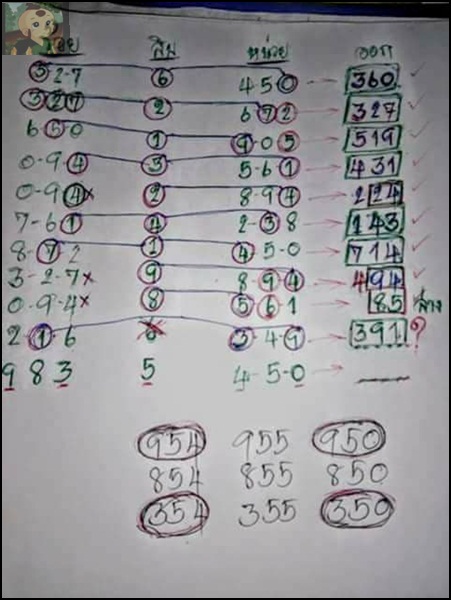 ร้อย สิบ หน่วย ออก
3-2-7 6 4-5-0 → 360 ✓
327 2 6 7 2 → 327 ✓
6 5 0 1 9-0-5 → 519 ✓
0-9-4 3 5-6-1 → 431 ✓
0-9-4× 2 8-9-4 → 224 ✓
7-6-1 4 2-3-8 → 143 ✓
8-7-2 1 4-5-0 → 714 ✓
3-2-7× 9 8-9-4 → 494 ✓
0-9-4× 8 5-6-1 → 85 ล่าง
2-1-6 3-4-9 → 391 ?
9 8 3 5 4-5-0 →
954 955 950
854 855 850
354 355 350